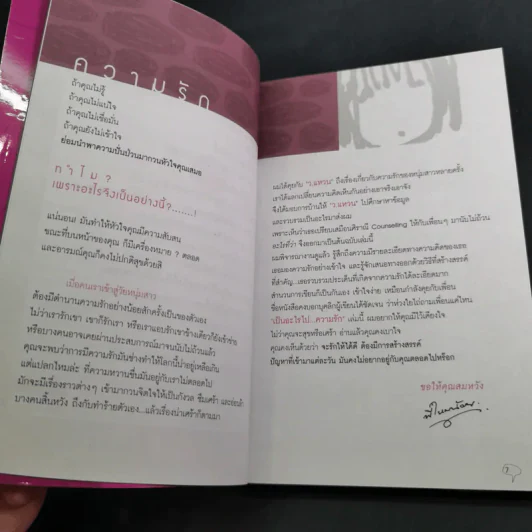 ความรัก
ถ้าคุณไม่รู้
ถ้าคุณไม่แน่ใจ
ถ้าคุณไม่เชื่อมั่น
ถ้าคุณยังไม่เข้าใจ
ย่อมนำพาความปั่นป่วนมากวนหัวใจคุณเสมอ
ทำไม?
เพราะอะไรจึงเป็นอย่างนี้?.......!
แน่นอน! มันทำให้หัวใจคุณมีความสับสน
ขณะที่บนหน้าของคุณ ก็มีเครื่องหมาย ? ตลอด
และอารมณ์คุณก็คงไม่ปกติสุขด้วยสิ
เมื่อคนเราเข้าสู่วัยหนุ่มสาว
ต้องมีตำนานความรักอย่างน้อยสักครั้งเป็นของตัวเอง
ไม่ว่าเรารักเขา เขาก็รักเรา หรือเราแอบรักเขาข้างเดียวก็ยังเข้าข่าย
หรือบางคนอาจเคยผ่านประสบการณ์มาจนนับไม่ถ้วนแล้ว
คุณจะพบว่าการมีความรักมันช่างทำให้โลกนี้น่าอยู่เหลือเกิน
แต่แปลกไหมล่ะ ที่ความหวานชื่นมันอยู่กับเราไม่ตลอดไป
มักจะมีเรื่องราวต่างๆ เข้ามากวนจิตใจให้เป็นกังวล ซึมเศร้า และ
บางคนสิ้นหวัง ถึงกับทำร้ายตัวเอง...แล้วเรื่องน่าเศร้าก็ตามมา
ผมได้คุยกับ "ว.แหวน" ถึงเรื่องเกี่ยวกับความรักของหนุ่มสาวหลายครั้ง
เราได้แลกเปลี่ยนความคิดเห็นกันอย่างเอาจริงเอาจัง
จึงได้มอบการบ้านให้ "ว.แหวน" ไปศึกษาหาข้อมูล
และรวบรวมเป็นอะไรมาส่งผม
เพราะเห็นว่าเธอเปรียบเสมือนศิราณี Counseling ให้กับเพื่อนๆ มานับไม่ถ้วน
อะไรที่ว่า จึงออกมาเป็นต้นฉบับเล่มนี้
ผมพิจารณางานดูแล้ว รู้สึกถึงความมีรายละเอียดทางความคิดของเธอ
เธอมองความรักอย่างเข้าใจ และรู้จักเสนอทางออกด้วยวิธีที่สร้างสรรค์
ที่สำคัญ...เธอรวบรวมประเด็นที่เกิดจากความรักได้ละเอียดมาก
สำนวนการเขียนก็เป็นกันเอง เข้าใจง่าย เหมือนกำลังคุยกับเพื่อน
ชื่อหนังสือคงบอกบุคลิกผู้เขียนได้ชัดเจน ว่าห่วงใยไถ่ถามเพื่อนแค่ไหน
"เป็นอะไรไป...ความรัก" เล่มนี้ ผมอยากให้คุณมีไว้เคียงใจ
ไม่ว่าคุณจะสุขหรือเศร้า อ่านแล้วคุณคงเบาใจ
คุณคงเห็นด้วยว่า จะรักให้ได้ดี ต้องมีการสร้างสรรค์
ปัญหาที่เข้ามาแต่ละวัน มันคงไม่อยากอยู่กับคุณตลอดไปหรอก
ขอให้คุณสมหวัง